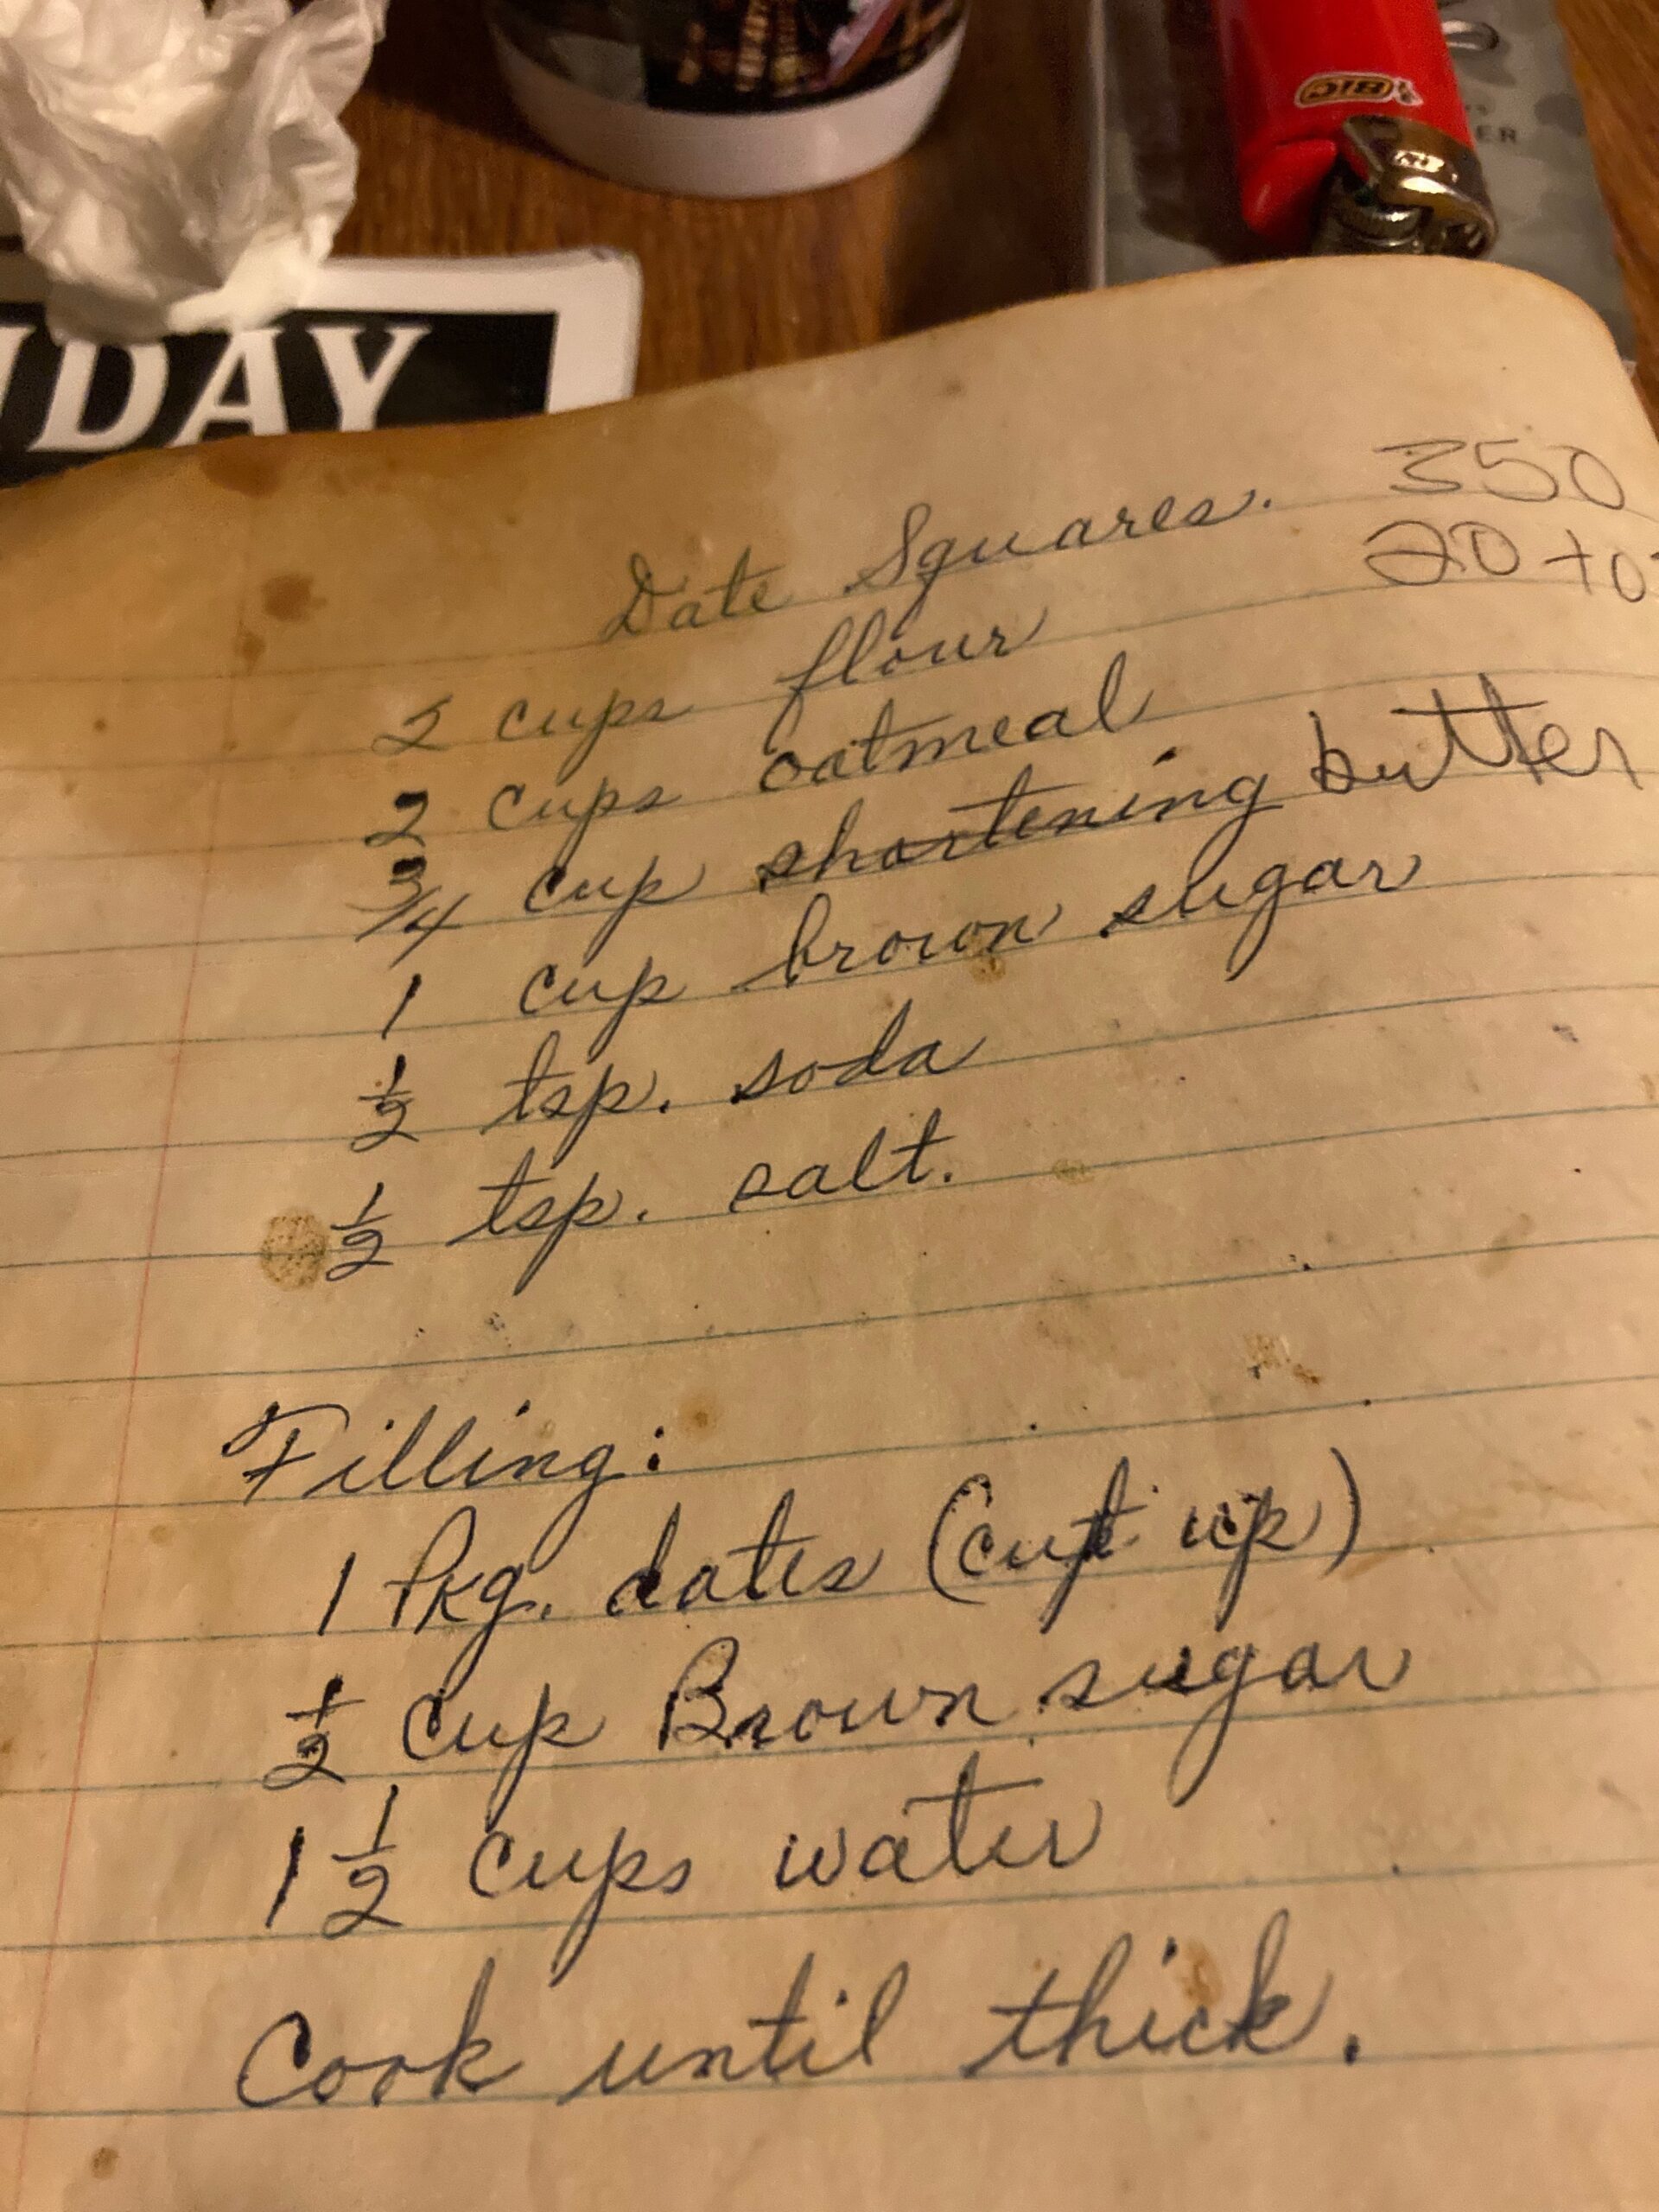 BIC
ER
DAY
Date Squares. 350
20 to
2 cups flour
2 cups oatmeal
3/4 cup shortening butter
1 cup brown sugar
1/2 tsp. soda
1/2 tsp. salt.
Filling:
1 Pkg. dates (cut up)
1/2 cup Brown sugar
1 1/2 cups water
Cook until thick.